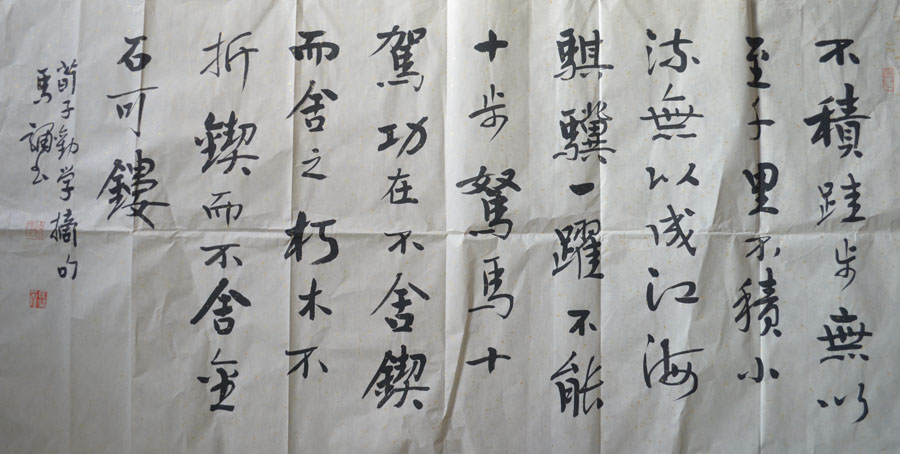 不積跬步無以
至千里不積小
流無以成江海
騏驥一躍不能
十步駑馬十
駕功在不舍鍥
而舍之朽木不
折鍥而不舍金
石可鏤
荀子勸学摘句
馬誦書